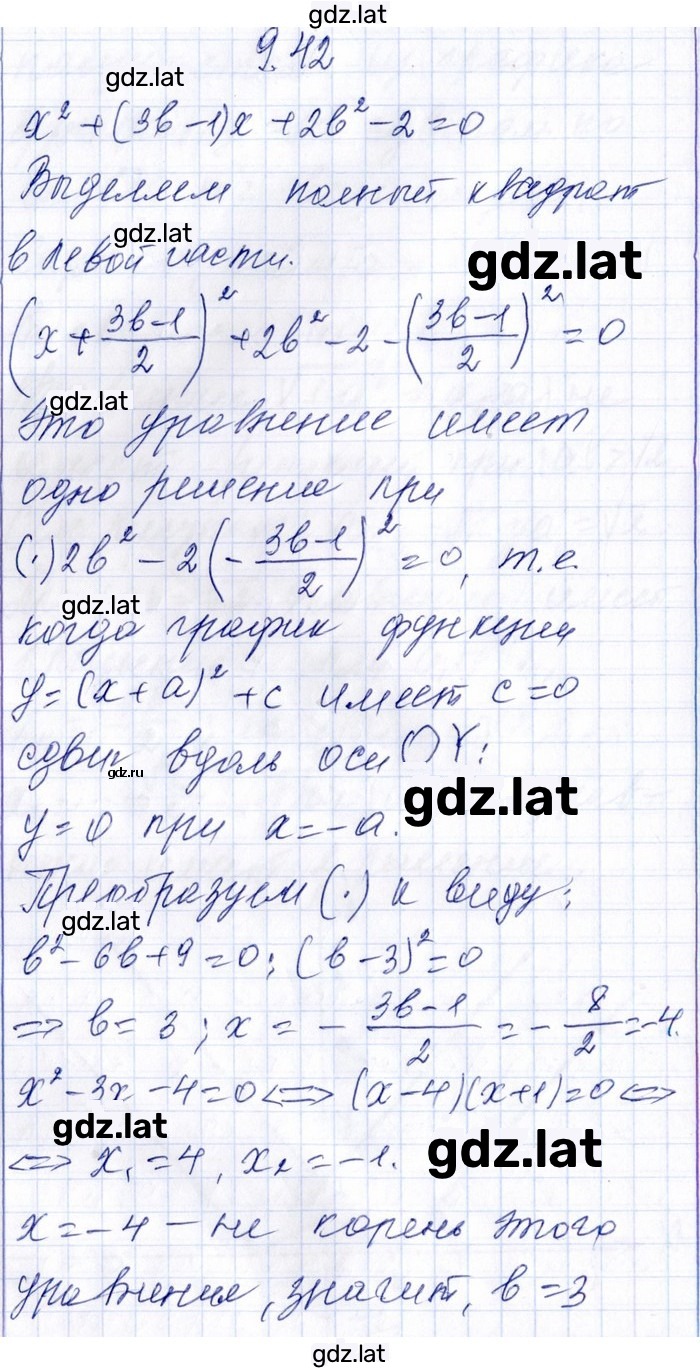 gdz.lat
9.42
gdz.lat
x² + (3b-1)x + 2b² - 2 = 0
Выделяем полный квадрат
gdz.lat
в левой части.
gdz.lat
(x + (3b-1)/2)² + 2b² - 2 - ((3b-1)/2)² = 0
gdz.lat
Это уравнение имеет
одно решение при
(·) 2b² - 2 (- (3b-1)/2)² = 0, т.е.
gdz.lat
когда график функции
y = (x+a)² + c имеет c = 0
сдвиг вдоль оси OY:
gdz.ru
gdz.lat
y = 0 при x = -a.
Преобразуем (·) к виду:
gdz.lat
b² - 6b + 9 = 0; (b-3)² = 0
=> b = 3; x = - (3b-1)/2 = - 8/2 = -4.
x² - 3x - 4 = 0 <=> (x-4)(x+1) = 0 <=>
gdz.lat
gdz.lat
<=> x₁ = 4, x₂ = -1.
x = -4 - не корень этого
уравнения, значит, b = 3
gdz.lat